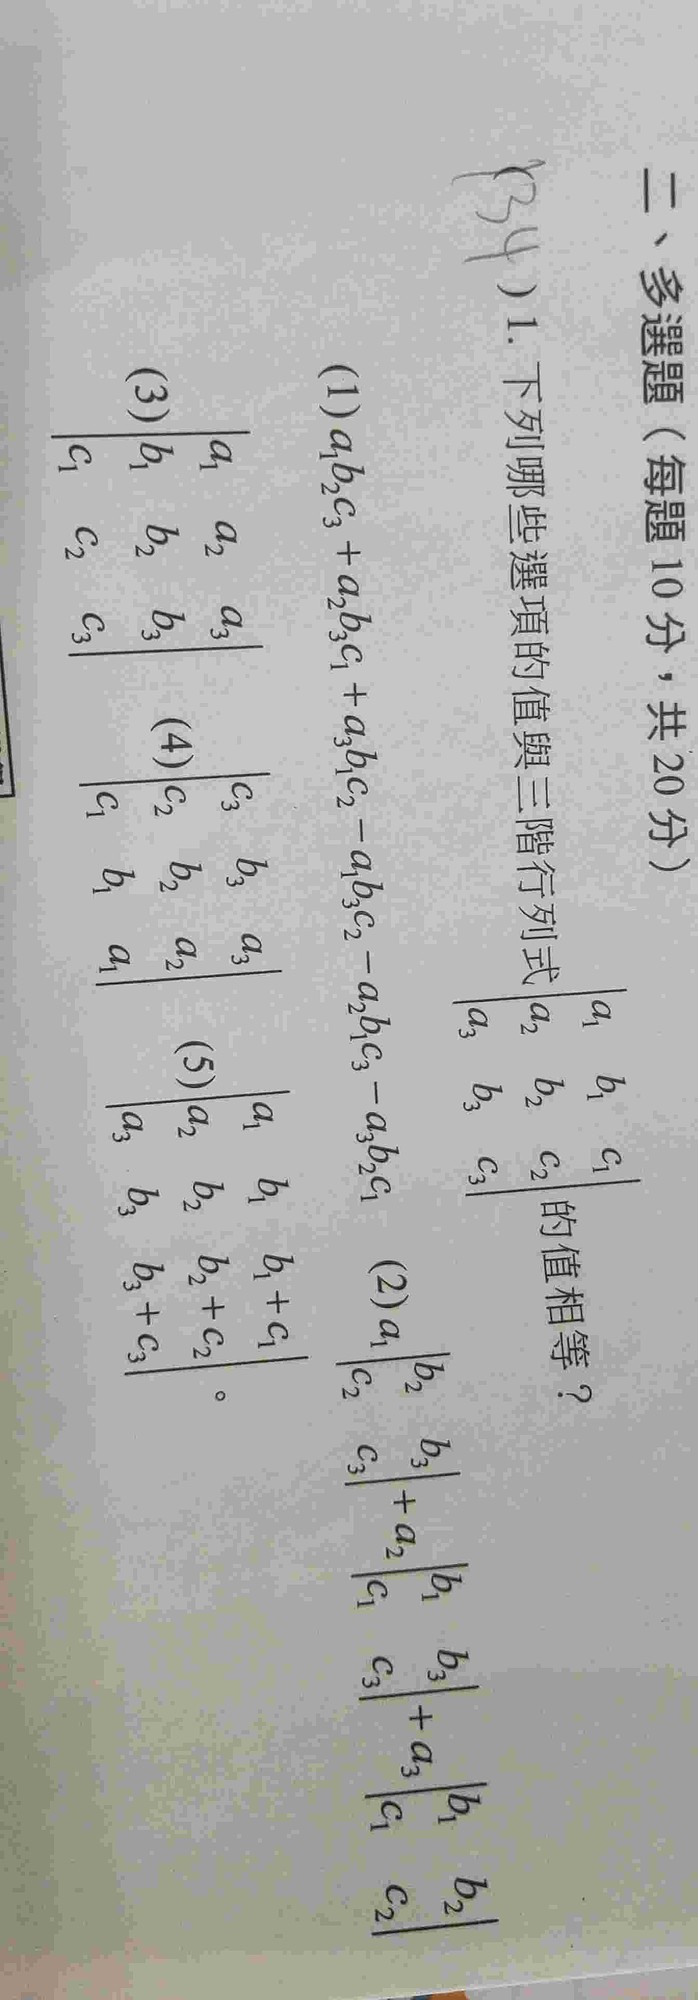 二、多選題（每題10分，共20分）
(134) 1. 下列哪些選項的值與三階行列式 | a₁ b₁ c₁ ; a₂ b₂ c₂ ; a₃ b₃ c₃ | 的值相等？
(1) a₁b₂c₃ + a₂b₃c₁ + a₃b₁c₂ − a₁b₃c₂ − a₂b₁c₃ − a₃b₂c₁ (2) a₁ | b₂ b₃ ; c₂ c₃ | + a₂ | b₁ b₃ ; c₁ c₃ | + a₃ | b₁ b₂ ; c₁ c₂ |
(3) | a₁ a₂ a₃ ; b₁ b₂ b₃ ; c₁ c₂ c₃ | (4) | c₃ b₃ a₃ ; c₂ b₂ a₂ ; c₁ b₁ a₁ | (5) | a₁ b₁ b₁+c₁ ; a₂ b₂ b₂+c₂ ; a₃ b₃ b₃+c₃ |。